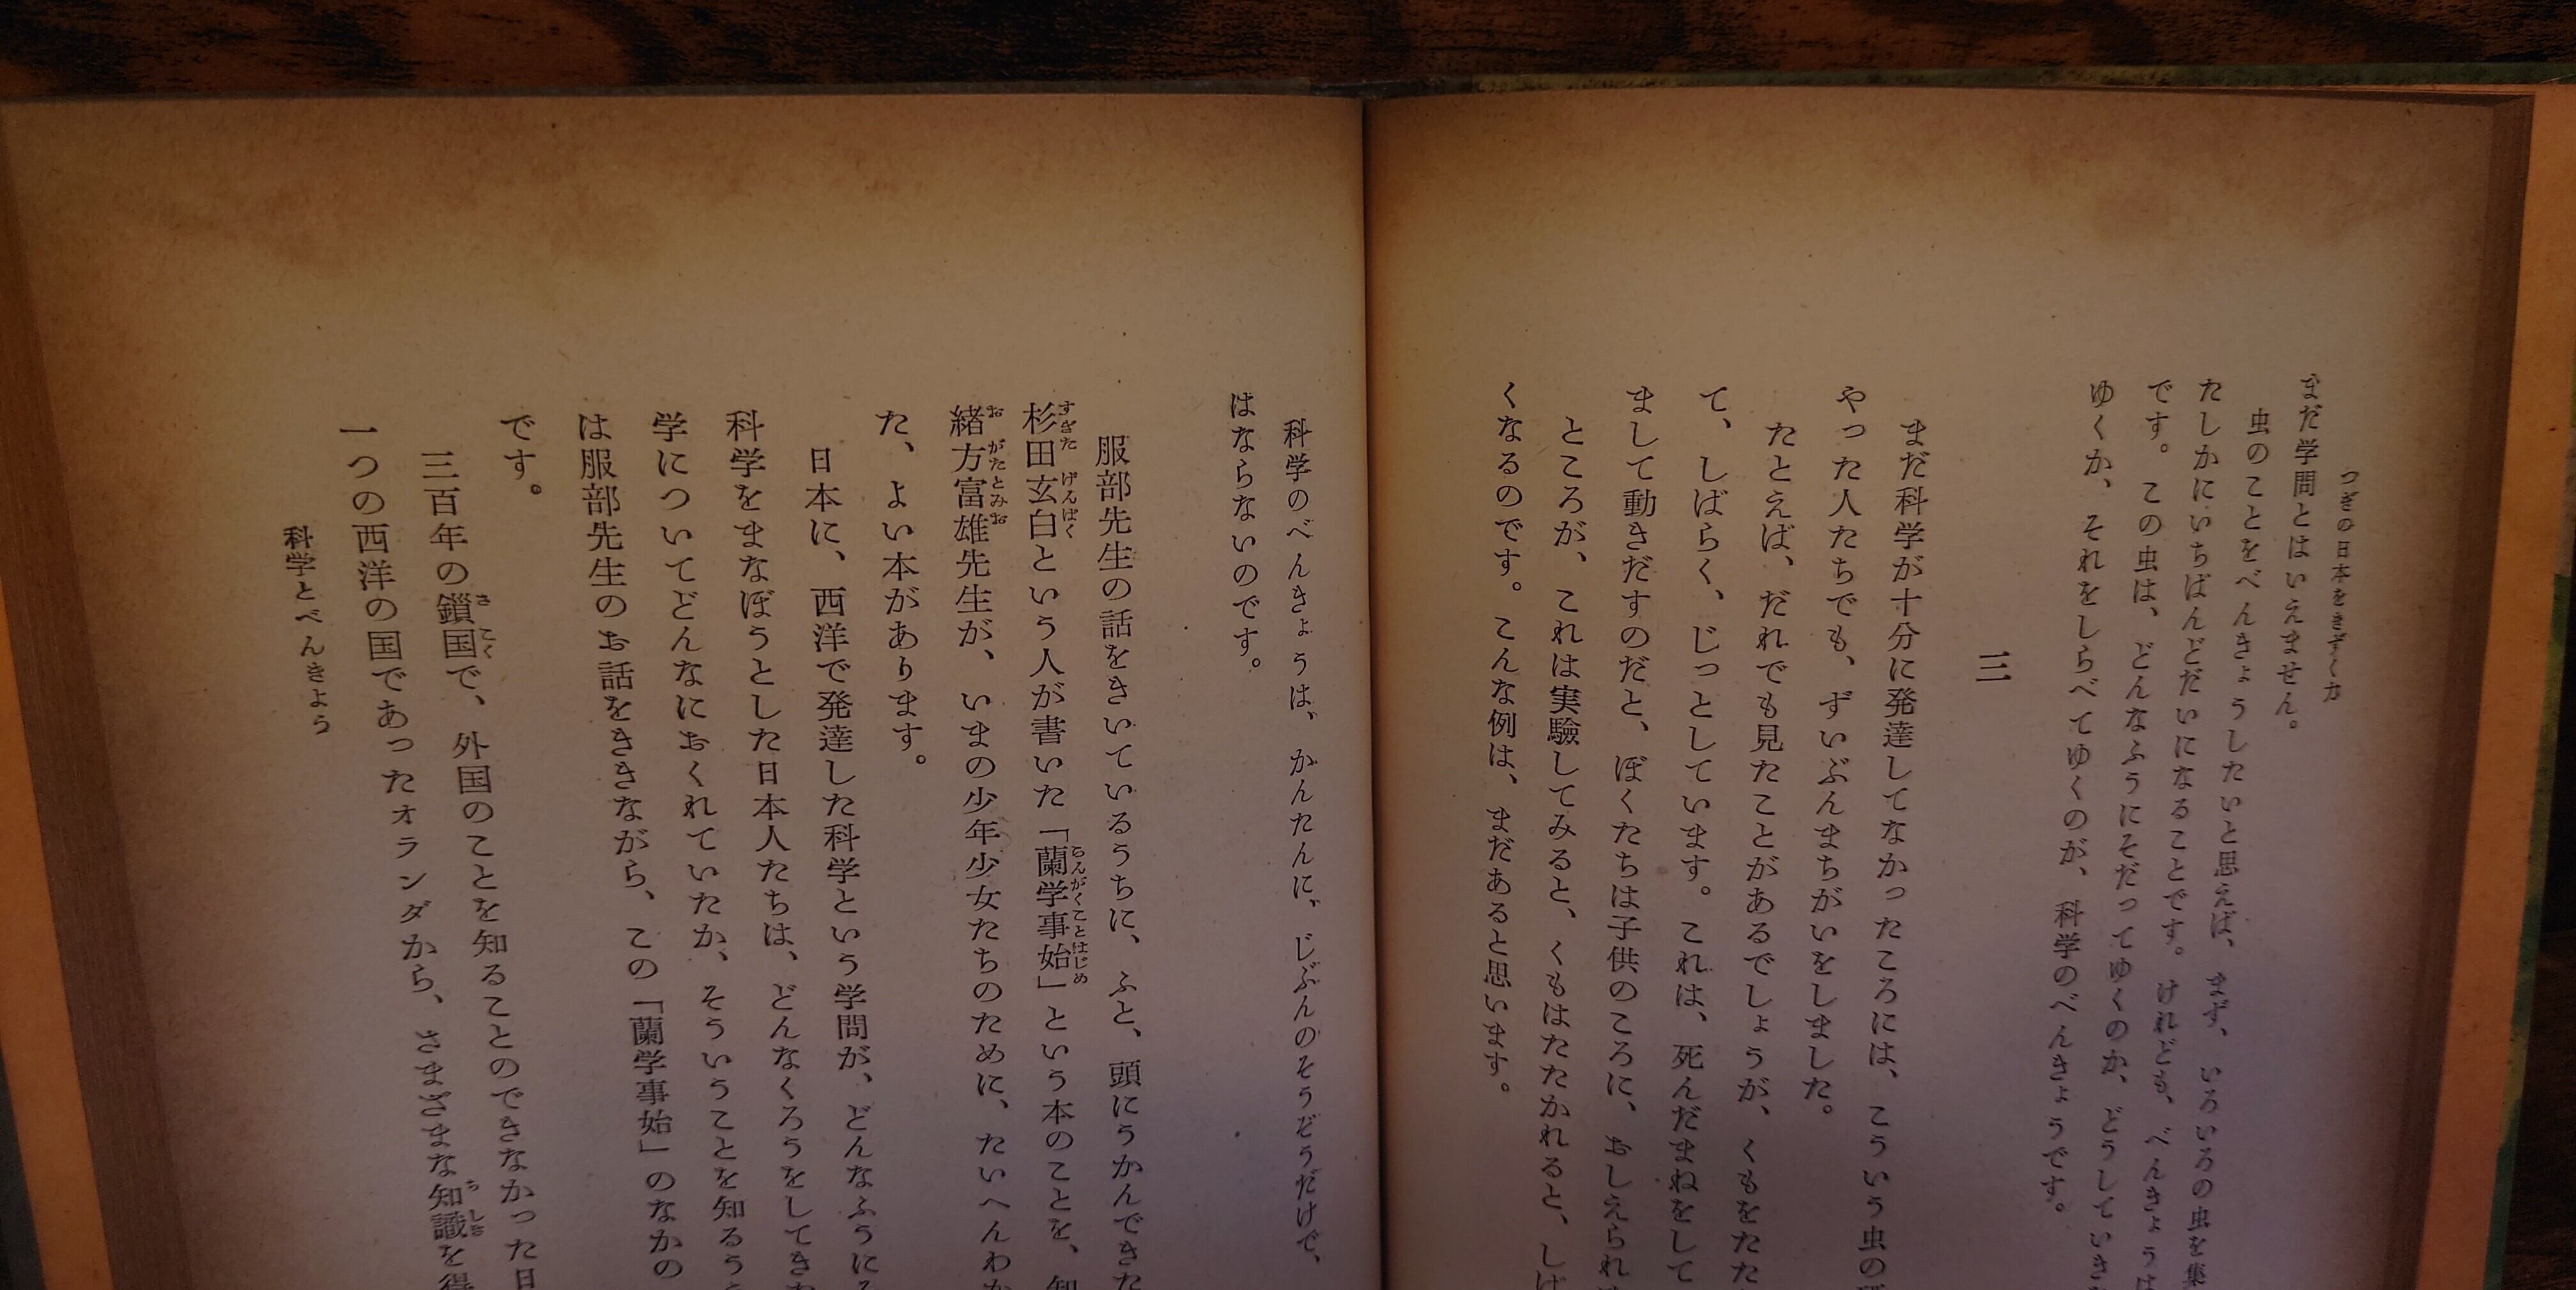 つぎの日本をきずく力
まだ学問とはいえません。
虫のことをべんきょうしたいと思えば、まず、いろいろの虫を集
たしかにいちばんどだいになることです。けれども、べんきょうは
です。この虫は、どんなふうにそだってゆくのか、どうしていき
ゆくか、それをしらべてゆくのが、科学のべんきょうです。
三
まだ科学が十分に発達してなかったころには、こういう虫の
やった人たちでも、ずいぶんまちがいをしました。
たとえば、だれでも見たことがあるでしょうが、くもをたた
て、しばらく、じっとしています。これは、死んだまねをして
まして動きだすのだと、ぼくたちは子供のころに、おしえられ
ところが、これは実驗してみると、くもはたたかれると、しば
くなるのです。こんな例は、まだあると思います。
科学のべんきょうは、かんたんに、じぶんのそうぞうだけで、
はならないのです。
服部先生の話をきいているうちに、ふと、頭にうかんできた
杉田玄白という人が書いた「蘭学事始」という本のことを、知
緒方富雄先生が、いまの少年少女たちのために、たいへんわか
た、よい本があります。
日本に、西洋で発達した科学という学問が、どんなふうに
科学をまなぼうとした日本人たちは、どんなくろうをしてきた
学についてどんなにおくれていたか、そういうことを知るう
は服部先生のお話をききながら、この「蘭学事始」のなかの
です。
三百年の鎖国で、外国のことを知ることのできなかった日
一つの西洋の国であったオランダから、さまざまな知識を得
科学とべんきよう